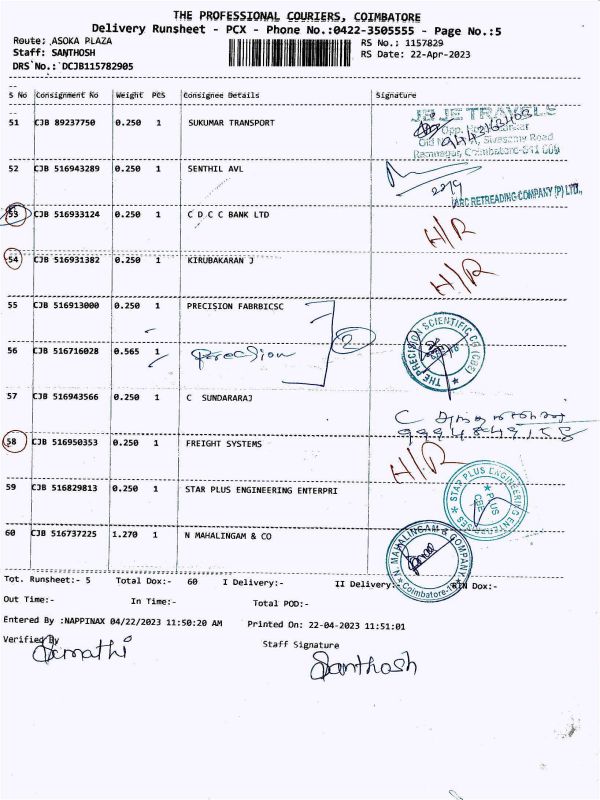 THE PROFESSIONAL COURIERS, COIMBATORE
Delivery Runsheet - PCX - Phone No.:0422-3505555 - Page No.:5
Route: ASOKA PLAZA RS No.: 1157829
Staff: SANTHOSH RS Date: 22-Apr-2023
DRS No.: DCJB115782905
S No Consignment No Weight PCS Consignee Details Signature
51 CJB 89237750 0.250 1 SUKUMAR TRANSPORT
JBJE TRAVELS
52 CJB 516943289 0.250 1 SENTHIL AVL
ARC RETREADING COMPANY (P) LTD.,
53 CJB 516933124 0.250 1 C D C C BANK LTD H/R
54 CJB 516931382 0.250 1 KIRUBAKARAN J H/R
55 CJB 516913000 0.250 1 PRECISION FABRBICSC 2
THE PRECISION SCIENTIFIC CO (CBE)
56 CJB 516716028 0.565 1
57 CJB 516943566 0.250 1 C SUNDARARAJ
58 CJB 516950353 0.250 1 FREIGHT SYSTEMS H/R
59 CJB 516829813 0.250 1 STAR PLUS ENGINEERING ENTERPRI
STAR PLUS ENGINEERING ENTERPRISES
60 CJB 516737225 1.270 1 N MAHALINGAM & CO
N MAHALINGAM & COMPANY
Tot. Runsheet:- 5 Total Dox:- 60 I Delivery:- II Delivery:- RTN Dox:-
Out Time:- In Time:- Total POD:-
Entered By :NAPPINAX 04/22/2023 11:50:20 AM Printed On: 22-04-2023 11:51:01
Verified By Staff Signature
Santhosh